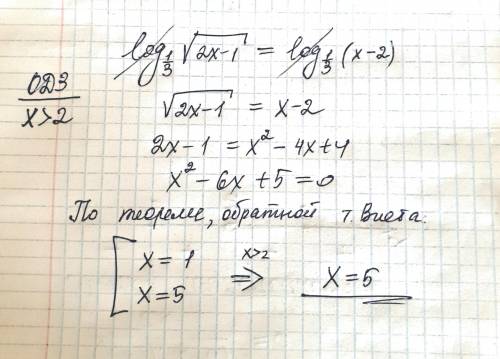 log_{1/3} √(2x-1) = log_{1/3} (x-2)
ОДЗ
x>2
√(2x-1) = x-2
2x-1 = x² - 4x+4
x² - 6x + 5 = 0
По теореме, обратной т. Виета.
[ x = 1
x>2
x = 5 ⇒ x = 5